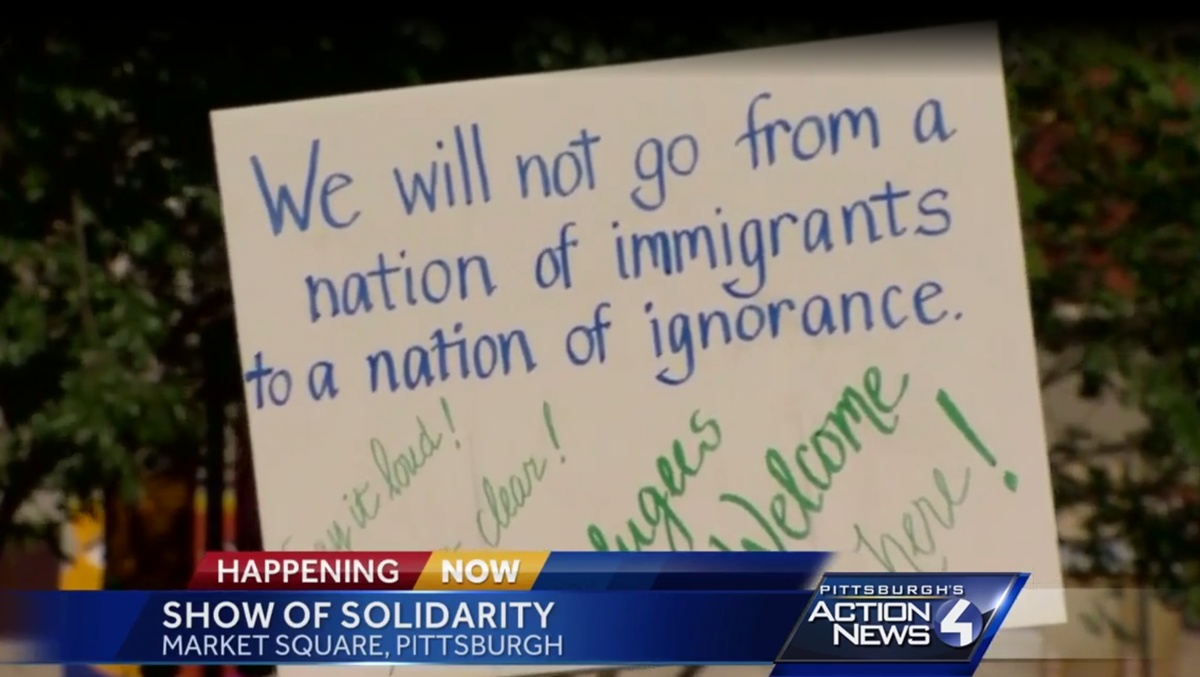 We will not go from a
nation of immigrants
to a nation of ignorance.
it loud!
clear!
Welcome
here!
HAPPENING NOW
SHOW OF SOLIDARITY
MARKET SQUARE, PITTSBURGH
PITTSBURGH'S
ACTION
NEWS 4